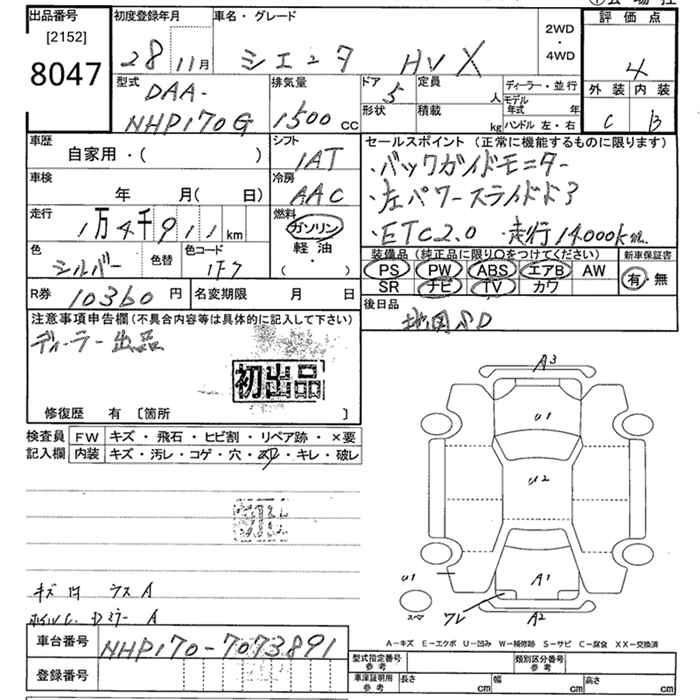 出品番号 初度登録年月 車名・グレード 評価点
[2152] 28 11月 シエンタ HV X 2WD・4WD 4
8047
型式 DAA- 排気量 ドア 5 定員 人 ディーラー・並行 外装 内装
NHP170G 1500 cc 形状 積載 kg モデル年式 年 ハンドル 左・右 C B
車歴 シフト セールスポイント(正常に機能するものに限ります)
自家用・( ) IAT ・バックガイドモニター
車検 年 月(日) 冷房 AAC ・左パワースライドドア
走行 1万4千911km 燃料 ガソリン ・ETC2.0 ・走行14.000km
色 シルバー 色替 色コード 1F7 軽油 ( ・ )
装備品(純正品に限り○をつけてください) 新車保証書
PS PW ABS エアB AW 有・無
SR ナビ TV カワ
R券 10360円 名変期限 月 日 後日品
地図SD
注意事項申告欄(不具合内容等は具体的に記入して下さい)
ディーラー出品
初出品
修復歴 有 [箇所 ]
検査員 FW キズ・飛石・ヒビ割・リペア跡・×要
記入欄 内装 キズ・汚レ・コゲ・穴・スレ・キレ・破レ
A3
U1
U2
A1
U1
ワレ
A2
スペア
キズ 凹 ウス A
ホイルC. Dミラー A
A-キズ E-エクボ U-凹み W-補修跡 S-サビ C-腐食 XX-交換済
車台番号 NHP170-7073891
登録番号
型式指定番号 参考 類別区分番号 参考
車庫証明用 参考 長さ cm 幅 cm 高さ cm